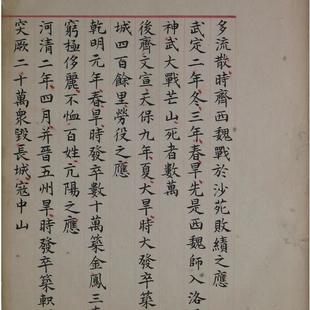 多流散時齊西魏戰於沙苑敗績之應
武定二年冬三年春旱先是西魏師入洛
神武大戰芒山死者數萬
後齊文宣天保九年夏大旱時大發卒築
城四百餘里勞役之應
乾明元年春旱時發卒數十萬築金鳳三
窮極侈麗不恤百姓亢陽之應
河清二年四月并晉五州旱時發卒築軹
突厥二千萬衆毀長城寇中山